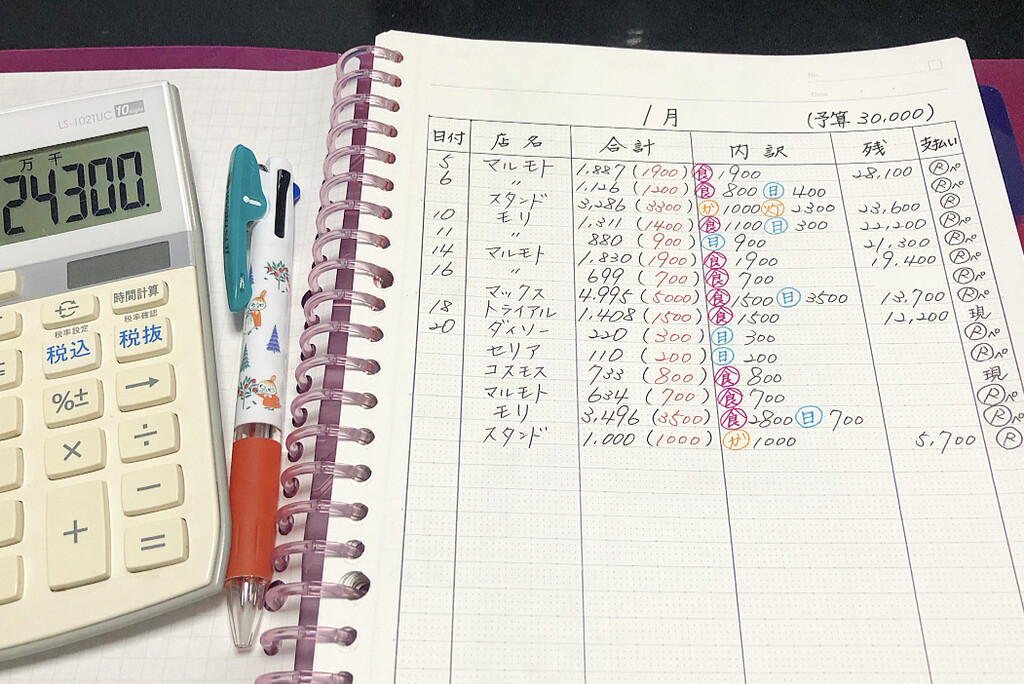 LS-102TUC 10 digits
万 千
24300.
時間計算
税率設定
税率確認
税込
税抜
%±
→
×
÷
+
−
=
No.
Date
1月 (予算 30,000)
日付 店名 合計 内訳 残 支払い
5 マルモト 1,887 (1900) 食 1900 28,100 Ⓡペ
6 〃 1,126 (1200) 食 800 日 400 Ⓡペ
スタンド 3,286 (3300) ガ 1000 灯 2300 23,600 Ⓡ
10 モリ 1,311 (1400) 食 1100 日 300 22,200 Ⓡペ
11 〃 880 (900) 日 900 21,300 Ⓡペ
14 マルモト 1,830 (1900) 食 1900 19,400 Ⓡペ
16 〃 699 (700) 食 700 Ⓡペ
マックス 4,995 (5000) 食 1500 日 3500 13,700 Ⓡペ
18 トライアル 1,408 (1500) 食 1500 12,200 現
20 ダイソー 220 (300) 日 300 Ⓡペ
セリア 110 (200) 日 200 Ⓡペ
コスモス 733 (800) 食 800 現
マルモト 634 (700) 食 700 Ⓡペ
モリ 3,496 (3500) 食 2800 日 700 Ⓡペ
スタンド 1,000 (1000) ガ 1000 5,700 Ⓡ